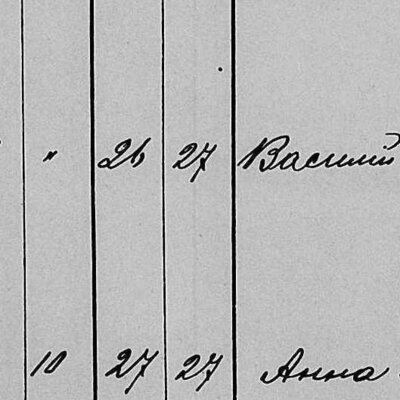 " 26 27 Василій
10 27 27 Анна